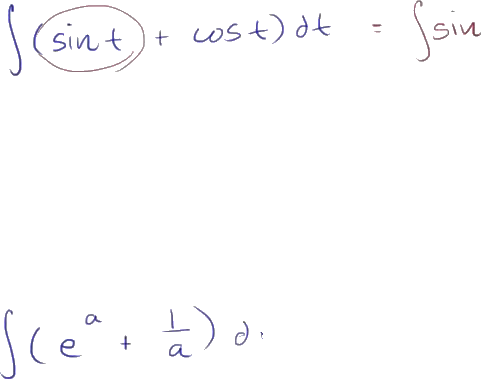 ∫(sin t + cos t) dt = ∫sin
∫(e^a + 1/a) d